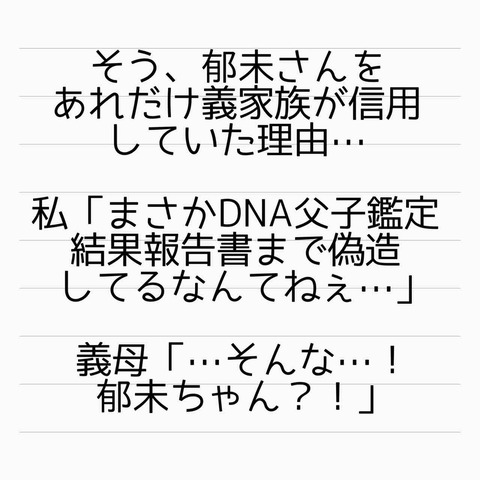 そう、郁未さんを
あれだけ義家族が信用
していた理由…
私「まさかDNA父子鑑定
結果報告書まで偽造
してるなんてねぇ…」
義母「…そんな…！
郁未ちゃん？！」